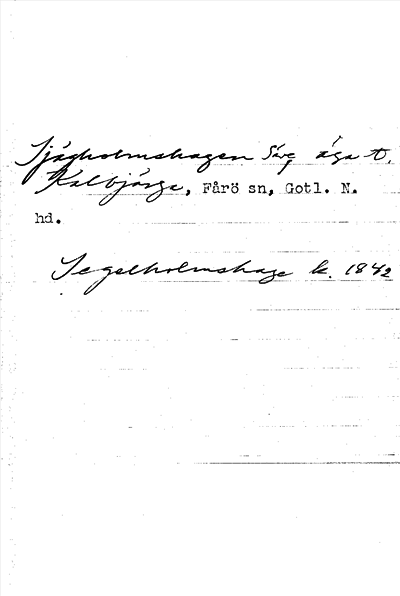 Sjägholmshagen äga t.
Kalbjärga, Fårö sn, Gotl. N.
hd.
Segelholmshage k. 1842